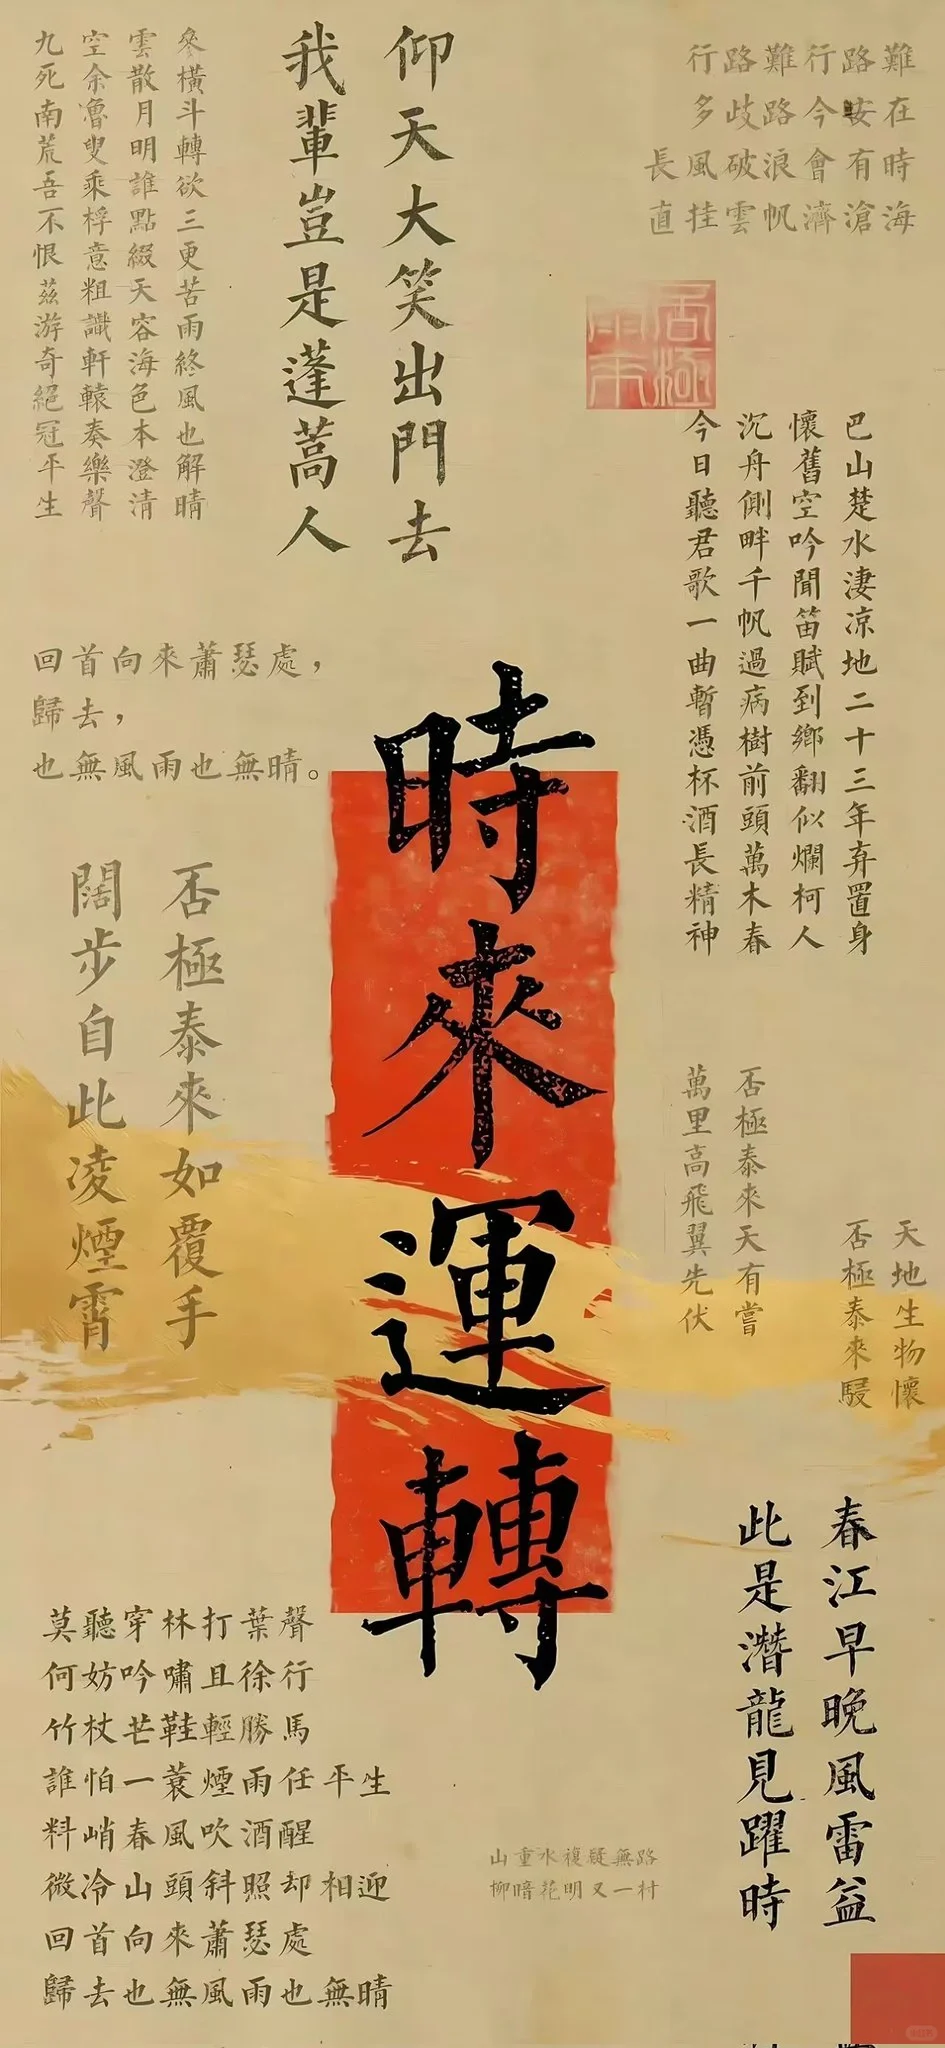 難路行難路行
在安今路歧多
時有會浪破風長
海滄濟帆雲挂直
仰天大笑出門去
我輩豈是蓬蒿人
參橫斗轉欲三更苦雨終風也解晴
雲散月明誰點綴天容海色本澄清
空余魯叟乘桴意粗識軒轅奏樂聲
九死南荒吾不恨茲游奇絕冠平生
否極
泰來
巴山楚水淒涼地二十三年弃置身
懷舊空吟聞笛賦到鄉翻似爛柯人
沉舟側畔千帆過病樹前頭萬木春
今日聽君歌一曲暫憑杯酒長精神
回首向來蕭瑟處，
歸去，
也無風雨也無晴。
時來運轉
否極泰來如覆手
闊步自此凌煙霄
否極泰來天有嘗
萬里高飛翼先伏
天地生物懷
否極泰來駸
春江早晚風雷益
此是潛龍見躍時
莫聽穿林打葉聲
何妨吟嘯且徐行
竹杖芒鞋輕勝馬
誰怕一蓑煙雨任平生
料峭春風吹酒醒
微冷山頭斜照却相迎
回首向來蕭瑟處
歸去也無風雨也無晴
山重水複疑無路
柳暗花明又一村